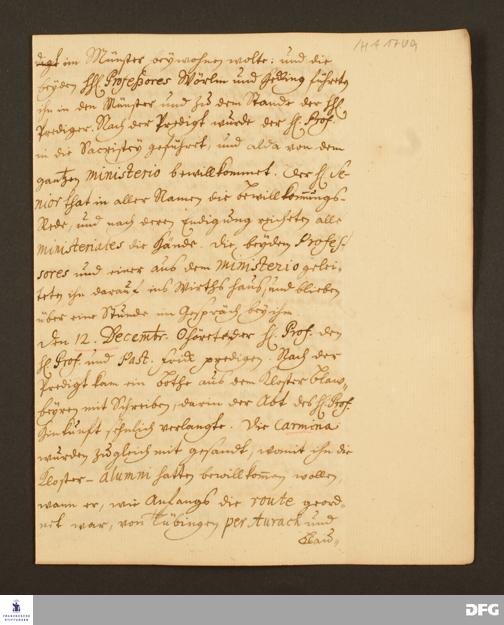 digt im Münster beywohnen wolte: und die
beyden HH. Professores Wörlen und Helling führeten
ihn in den Münster und zu dem Stande der HH.
Prediger. Nach der Predigt wurde der H. Prof.
in die Sacristey geführet, und alda von dem
gantzen ministerio bewillkommet. Der H. Se-
nior that in aller Namen die Bewillkommungs-
Rede, und nach deren Endigung reicheten alle
ministeriales die Hände. Die beyden Profes-
sores und einer aus dem ministerio gelei-
teten ihn darauf ins Wirthshaus, und blieben
über eine Stunde im Gespräch bey ihm
Den 12. Decembr. Hörete der H. Prof. den
H. Prof. und Past. Frick predigen. Nach der
Predigt kam ein Bothe aus dem Kloster Blau-
beyren mit Schreiben, darin der Abt des H. Prof.
Hinkunft sehnlich verlangte. Die Carmina
wurden zugleich mit gesandt, womit ihn die
Kloster-alumni hatten bewillkommen wollen,
wann er, wie Anfangs die route geord-
net war, von Tübingen per Aurach und
Blau-
FRANCKESCHE
STIFTUNGEN
DFG